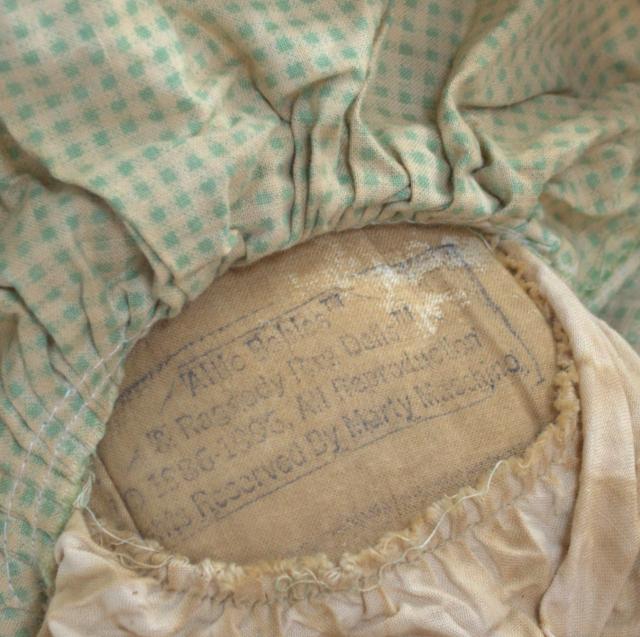 "Attic Babies"™
& Raggedy Rag Dolls"
1986-1993, All Reproduction
Reserved By Marty Maschino